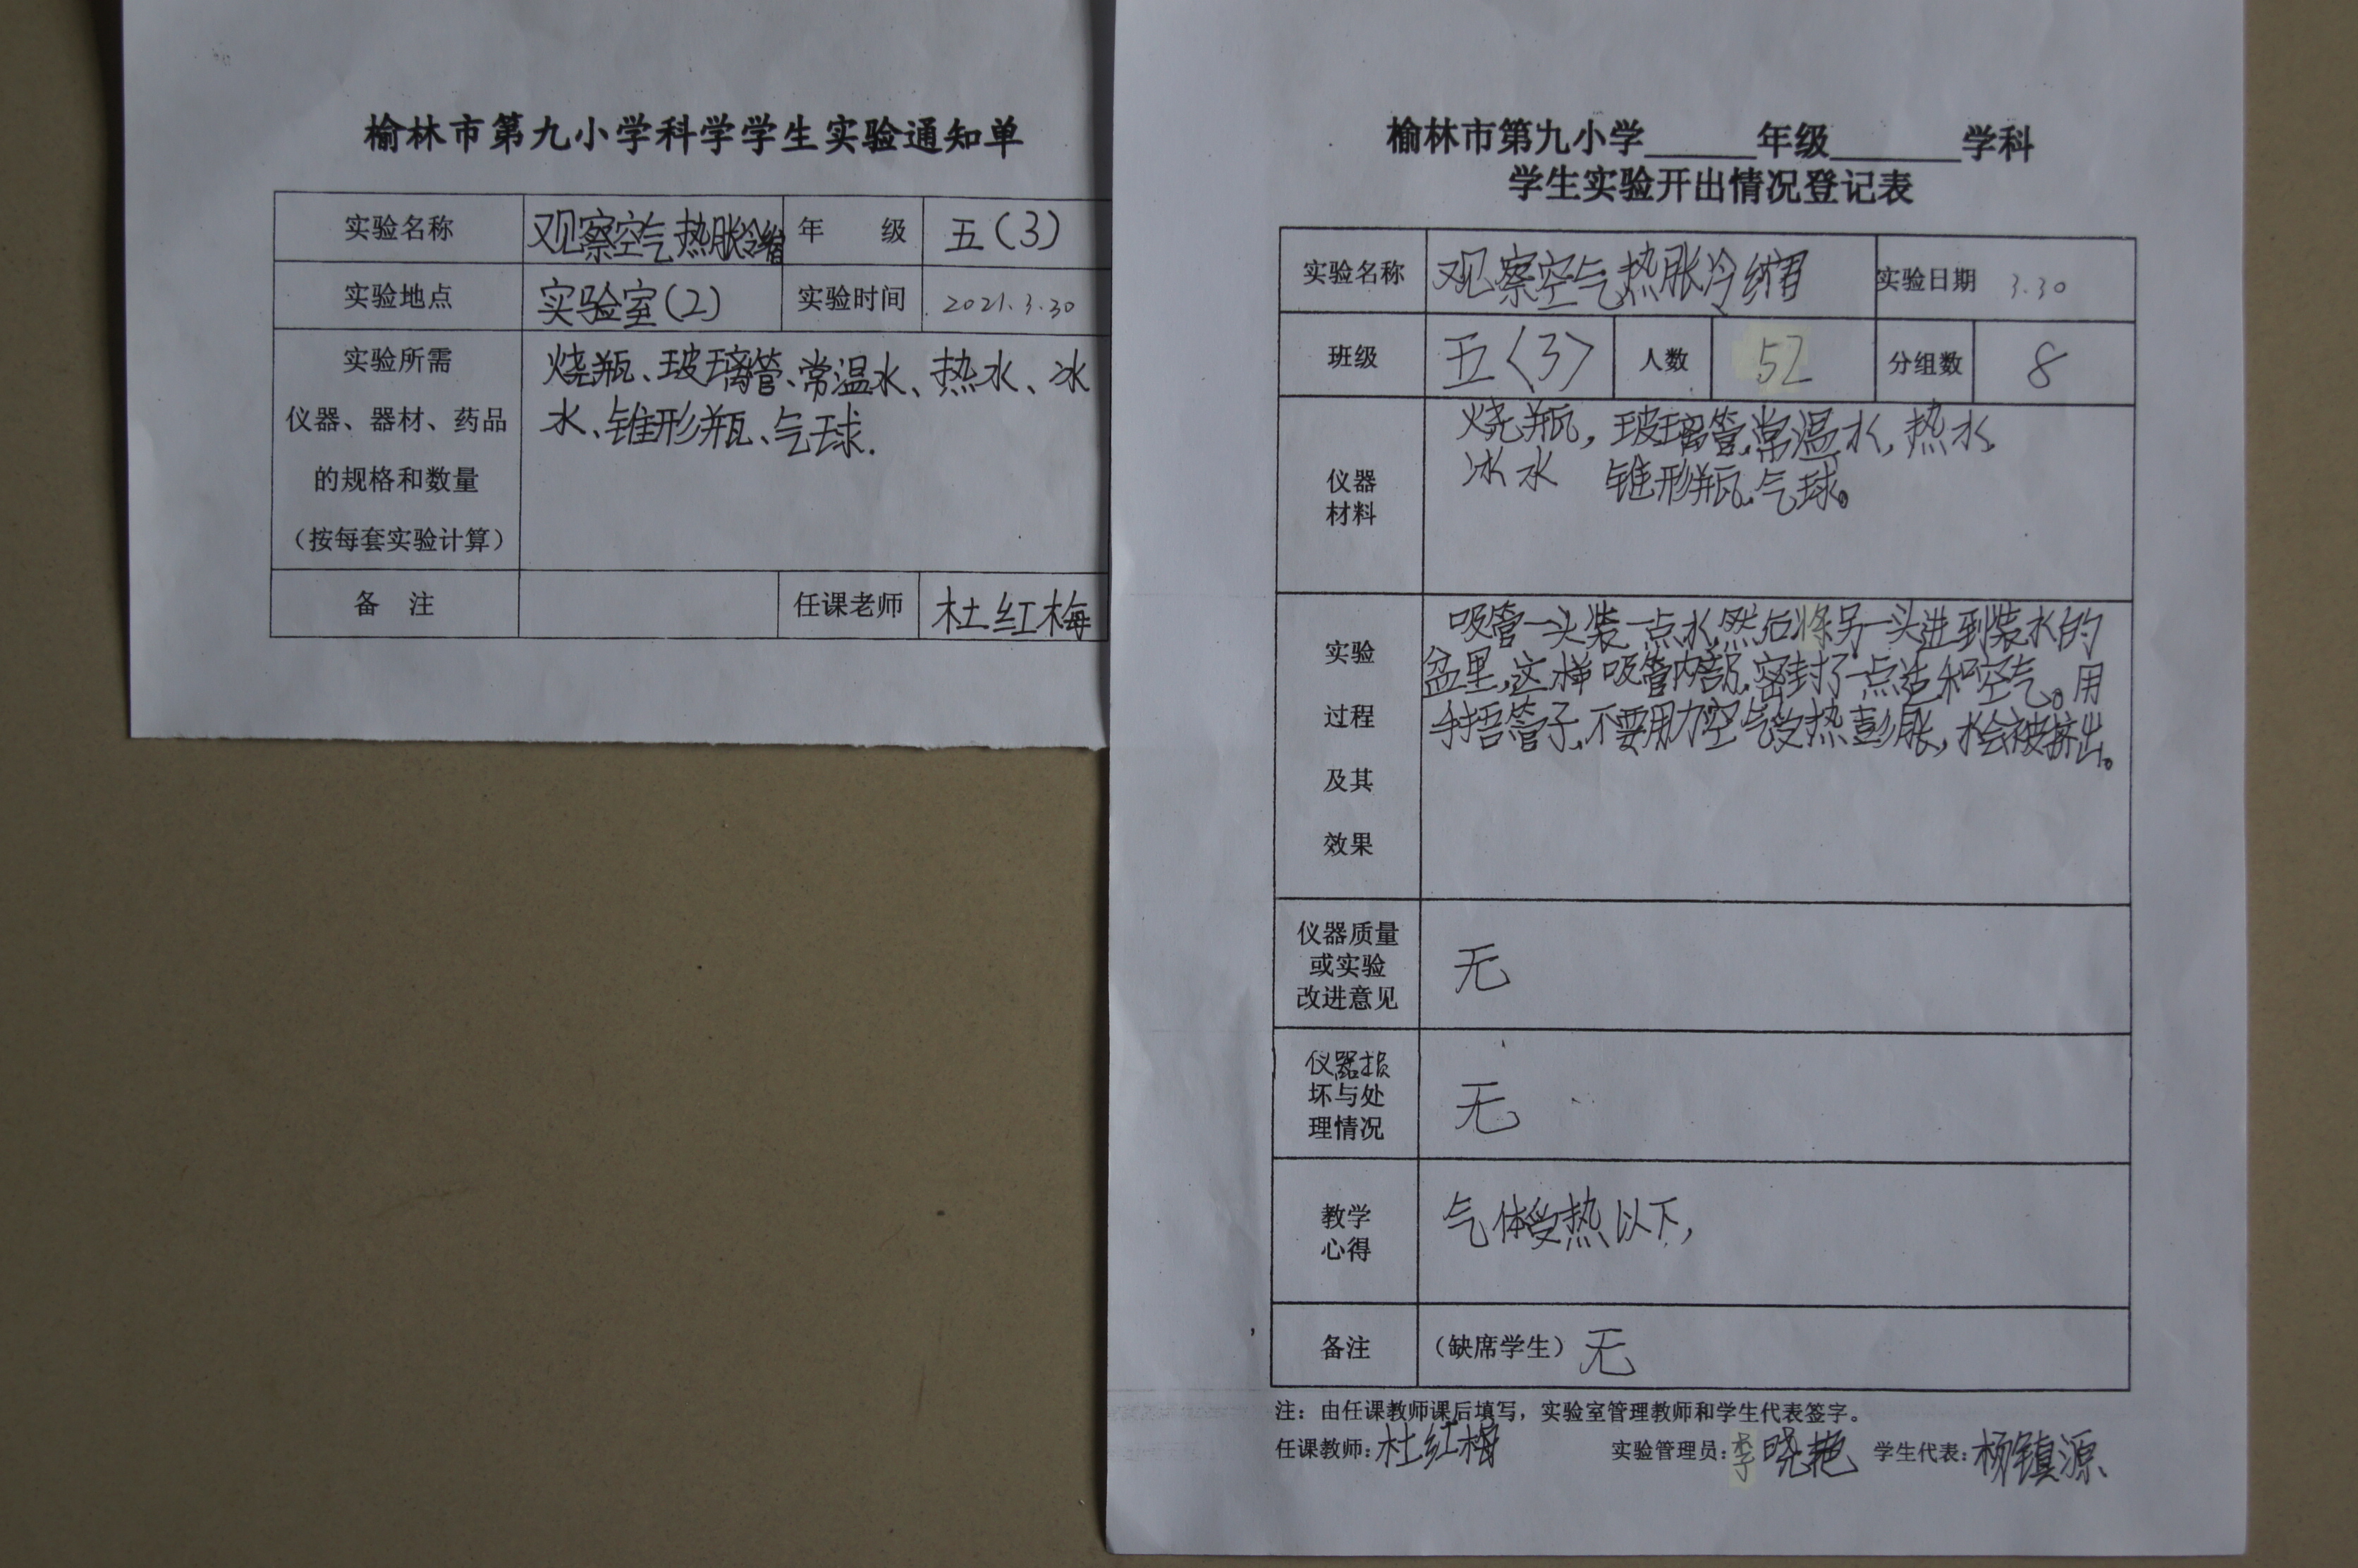 榆林市第九小学科学学生实验通知单
实验名称 观察空气热胀冷缩 年 级 五(3)
实验地点 实验室(2) 实验时间 2021.3.30
实验所需
仪器、器材、药品
的规格和数量
(按每套实验计算)
烧瓶、玻璃管、常温水、热水、冰
水、锥形瓶、气球.
备 注 任课老师 杜红梅
榆林市第九小学______年级_______学科
学生实验开出情况登记表
实验名称 观察空气热胀冷缩 实验日期 3.30
班级 五〈3〉 人数 52 分组数 8
仪器
材料
烧瓶, 玻璃管,常温水, 热水,
冰水 锥形瓶、气球。
实验
过程
及其
效果
吸管一头装一点水,然后将另一头进到装水的
盆里,这样吸管内部,密封了一点造和空气。用
手捂管子,不要用力空气受热彭胀,水会被挤出。
仪器质量
或实验
改进意见
无
仪器损
坏与处
理情况
无
教学
心得
气体受热以下,
备注 (缺席学生) 无
注:由任课教师课后填写,实验室管理教师和学生代表签字。
任课教师:杜红梅 实验管理员:李晓艳 学生代表:杨镇源